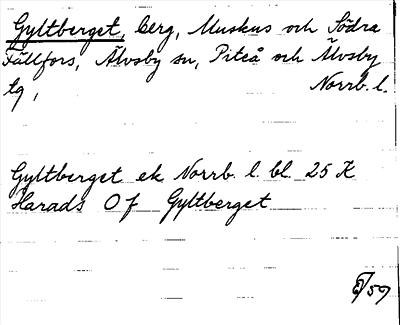 Gyltberget, berg, Muskus och Södra
Füllfors, Älvsby sn, Piteå och Älvsby
tg, Norrb. l.
Gyltberget ek Norrb. l. bl. 25 K
Harads Of Gyltberget
/59